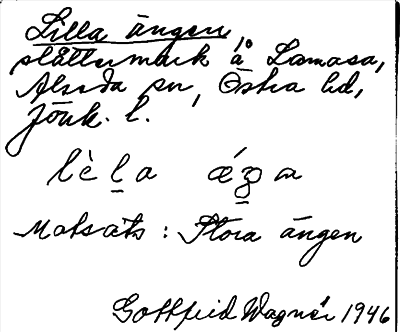 Lilla ängen,
slåttermark å Lamåsa,
Alseda sn, Östra hd,
Jönk. l.
lὲḷa
Motsats: Stora ängen
Gottfrid Wagnér 1946